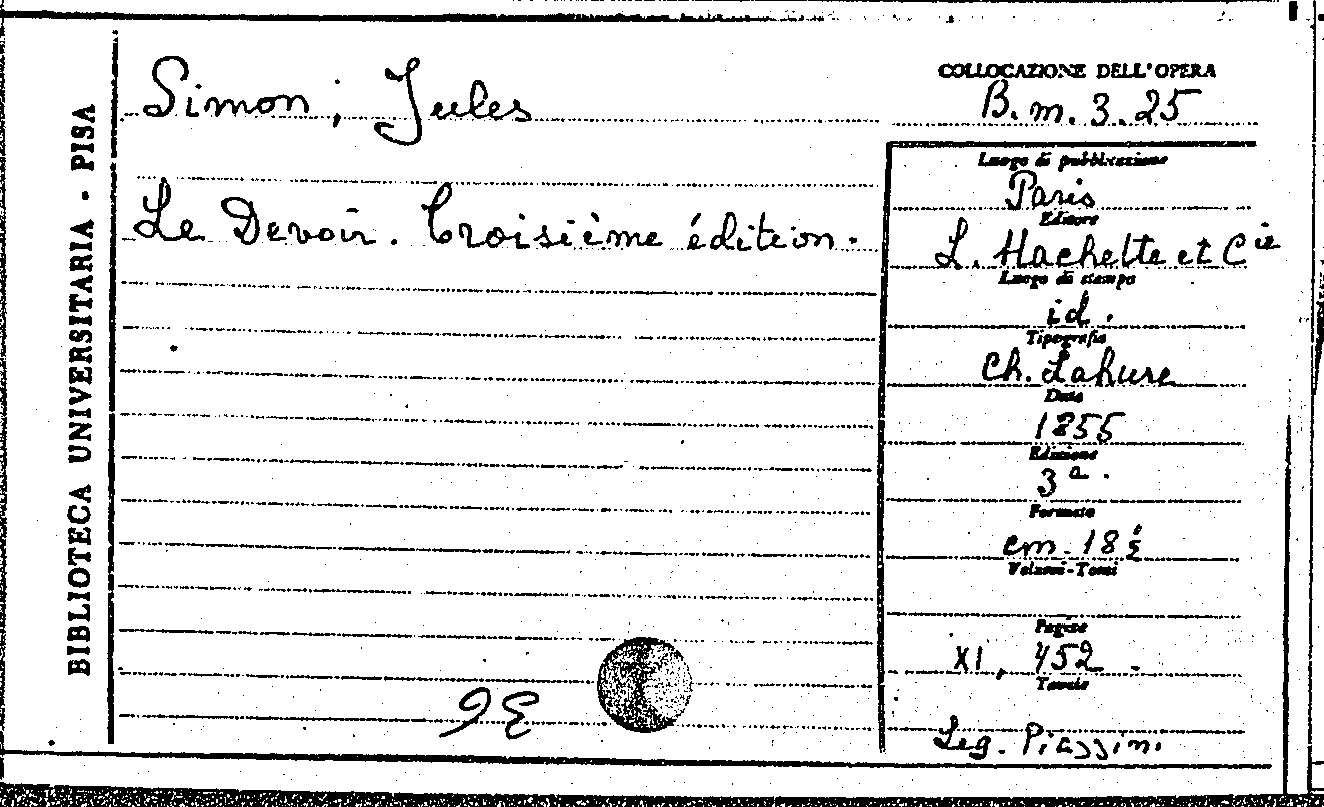 BIBLIOTECA UNIVERSITARIA - PISA
Simon, Jules
Le Devoir. Troisième édition.
COLLOCAZIONE DELL'OPERA
B. m. 3. 25
Luogo di pubblicazione
Paris
Editore
L. Hachette et Cie
Luogo di stampa
id.
Tipografia
Ch. Lahure
Data
1855
Edizione
3a.
Formato
cm. 18
Volumi-Tomi
Pagine
XI, 452
Tavole
Leg. Piazzini